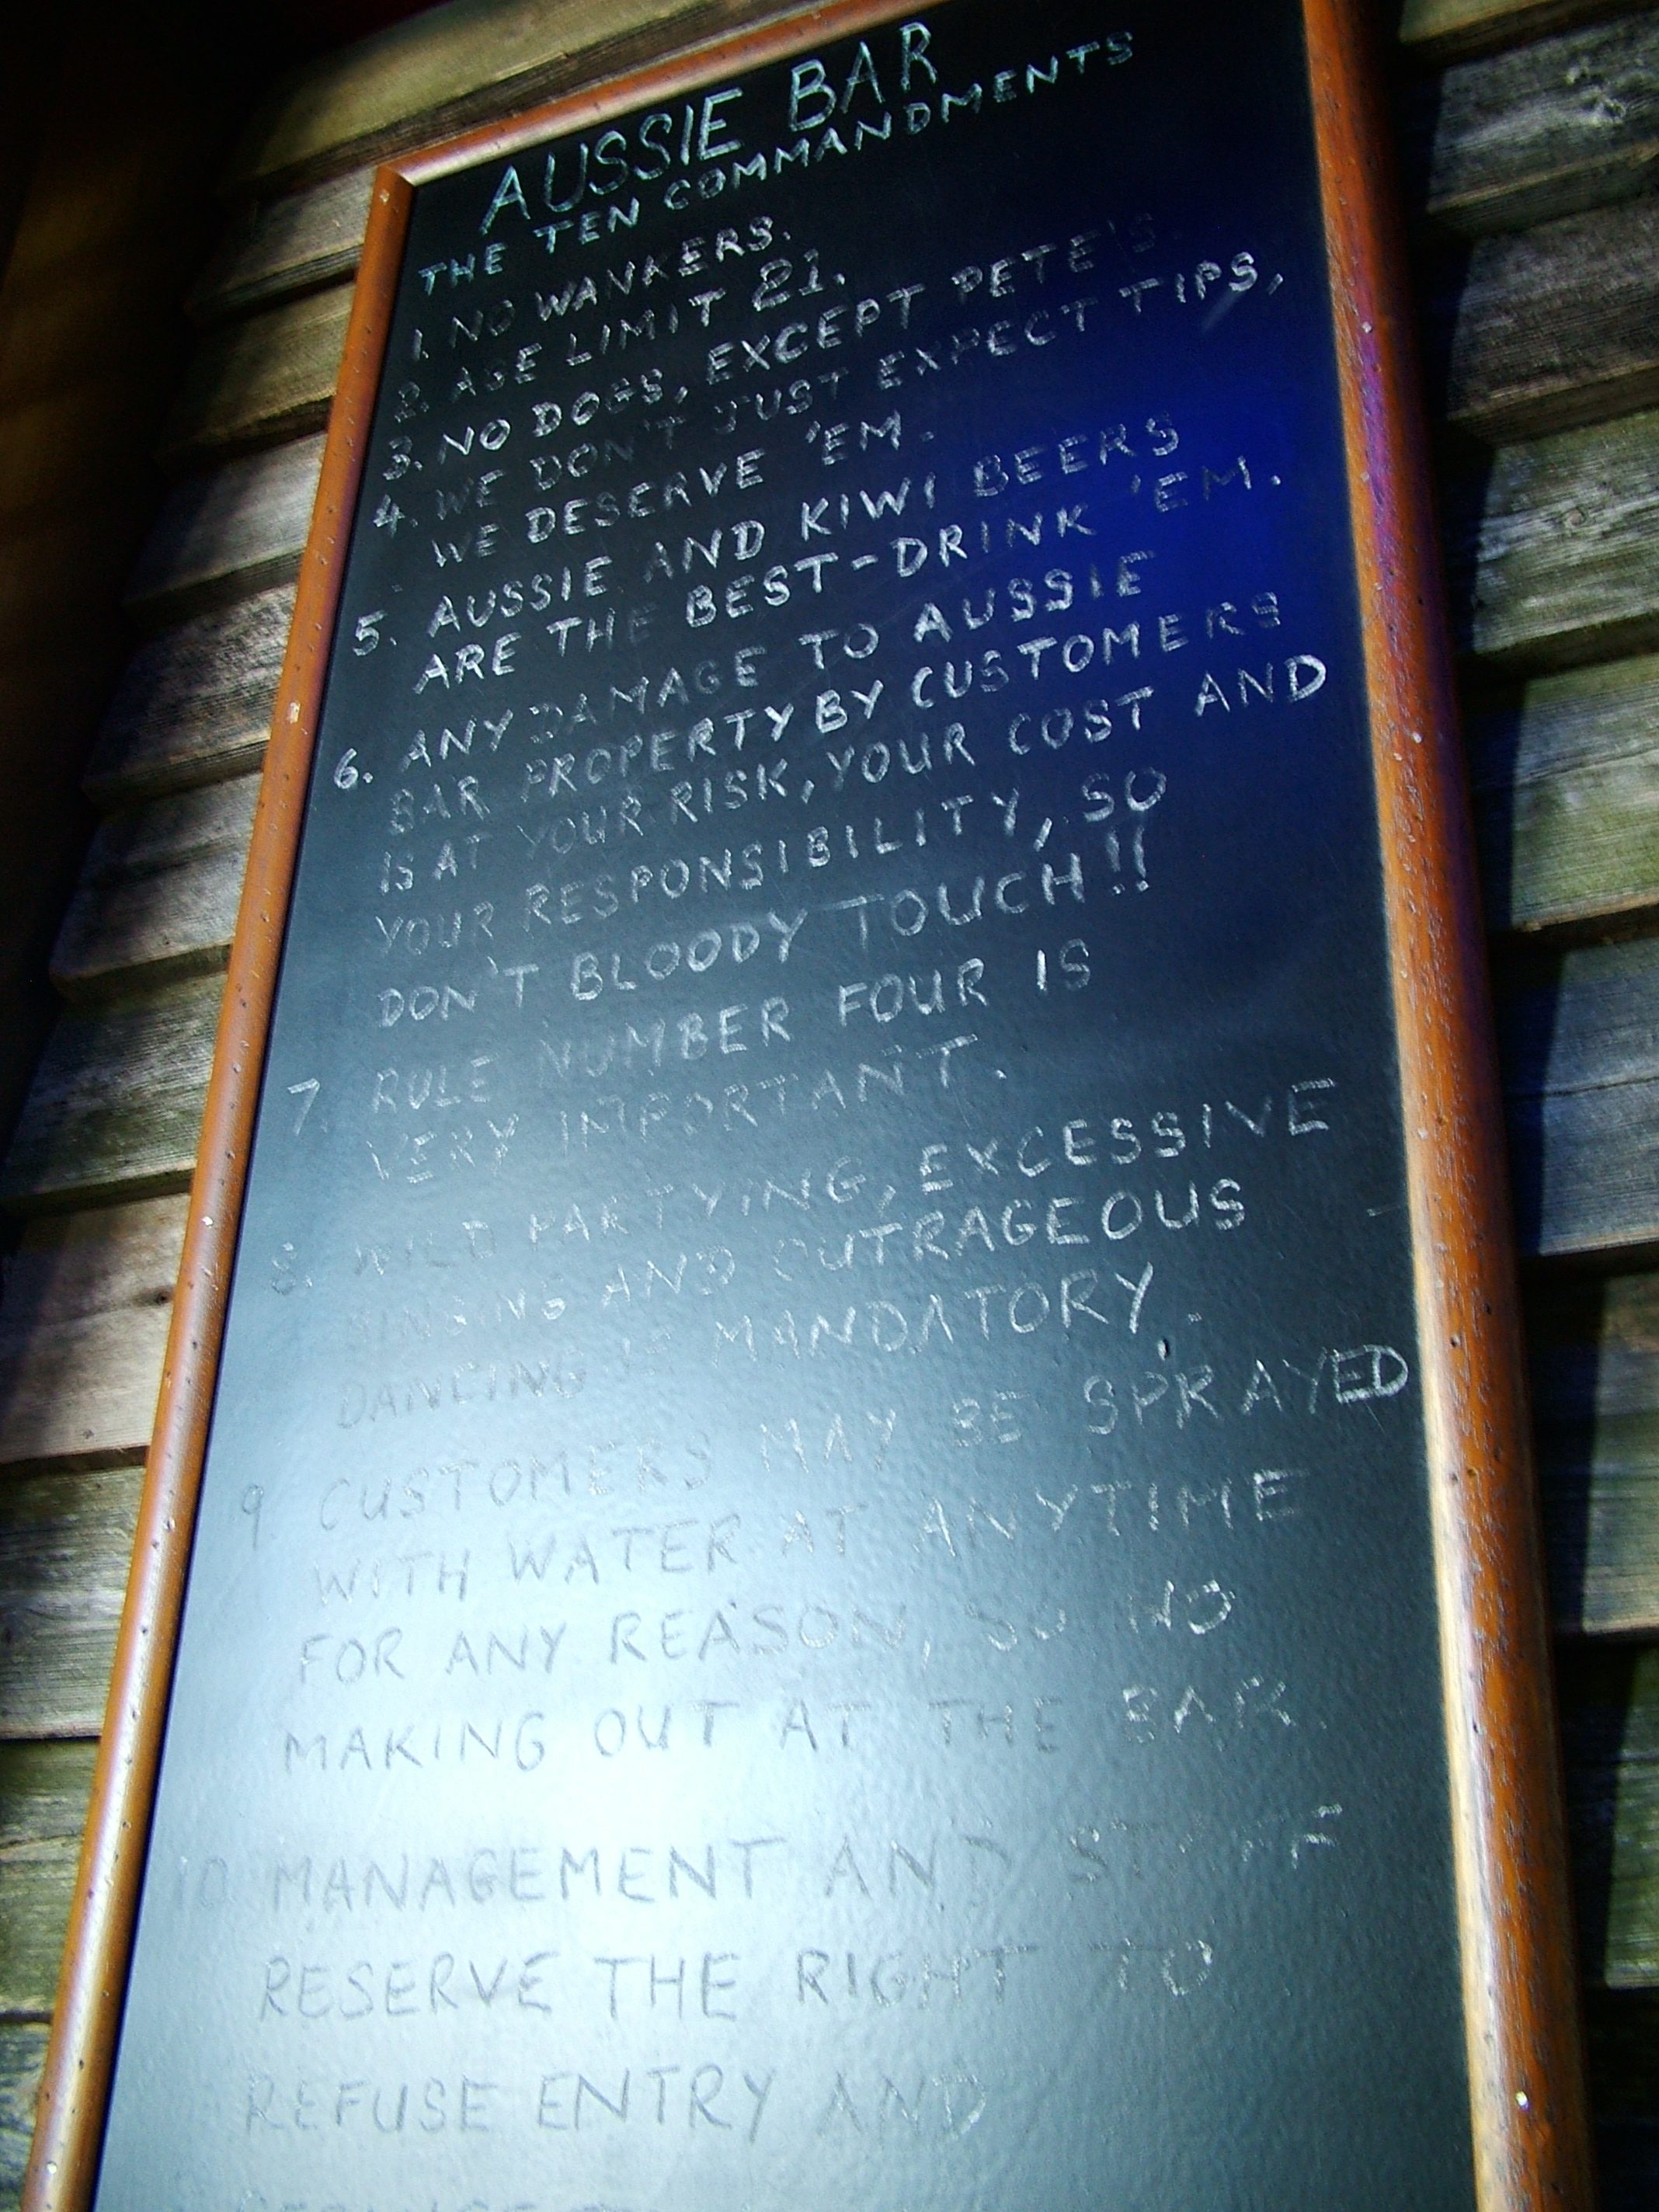 AUSSIE BAR
THE TEN COMMANDMENTS
1. NO WANKERS.
2. AGE LIMIT 21.
3. NO DOGS, EXCEPT PETE'S.
4. WE DON'T JUST EXPECT TIPS,
WE DESERVE 'EM.
5. AUSSIE AND KIWI BEERS
ARE THE BEST-DRINK 'EM.
6. ANY DAMAGE TO AUSSIE
BAR PROPERTY BY CUSTOMERS
IS AT YOUR RISK, YOUR COST AND
YOUR RESPONSIBILITY, SO
DON'T BLOODY TOUCH!!
7. RULE NUMBER FOUR IS
VERY IMPORTANT.
8. WILD PARTYING, EXCESSIVE
SINGING AND OUTRAGEOUS
DANCING IS MANDATORY.
9. CUSTOMERS MAY BE SPRAYED
WITH WATER AT ANYTIME
FOR ANY REASON, SO NO
MAKING OUT AT THE BAR.
10. MANAGEMENT AND STAFF
RESERVE THE RIGHT TO
REFUSE ENTRY AND